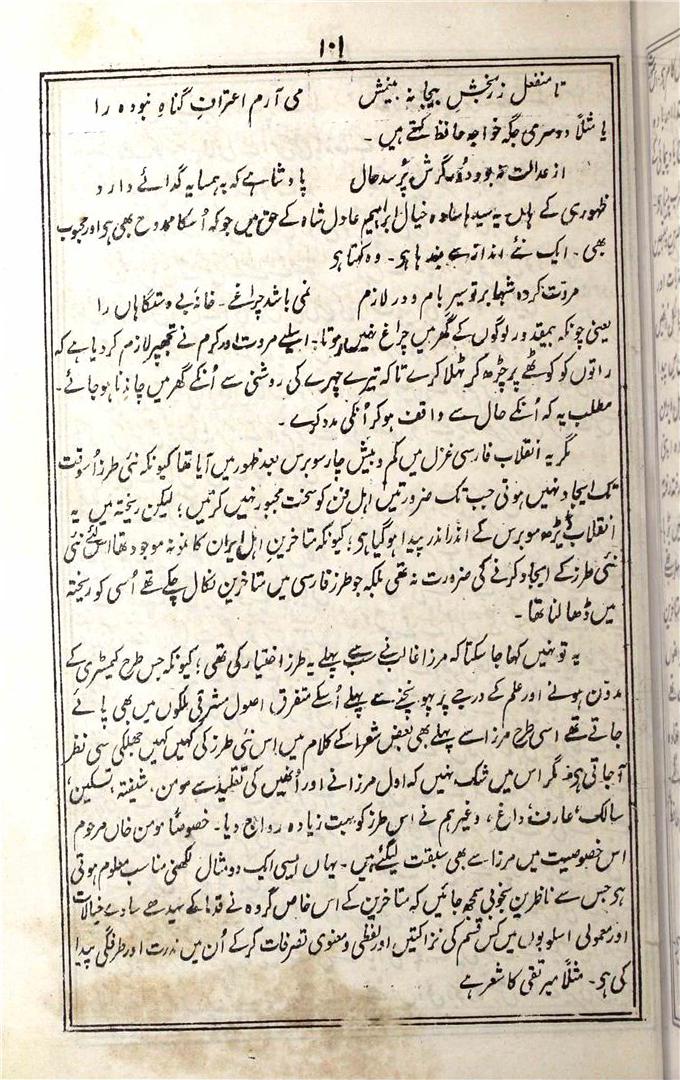 ۱۰۱
تا منفعل ز رنجش بیجا نہ بینمش می آرم اعترافِ گناہِ نبودہ را
یا مثلًا دوسری جگہ خواجہ حافظ کہتے ہیں۔
از عدالت نبود دُور گرش پُرسد حال پادشاہے کہ بہ ہمسایہ گدائے دارد
ظہوری کے ہاں یہ سیدھا سادہ خیال ابراہیم عادل شاہ کے حق میں جو کہ اُسکا ممدوح بھی ہو اور محبوب
بھی۔ ایک نئے انداز سے بندھا ہو۔ وہ کہتا ہو
مروّت کردہ شبہا بر تو سیرِ بام و در لازم نمی باشد چراغے۔ خانۂ بے دستگاہاں را
یعنی چونکہ بیمقدور لوگوں کے گھر میں چراغ نہیں ہوتا۔ اسلیے مروت اور کرم نے تجھپر لازم کردیا ہے کہ
راتوں کو کوٹھے پر چڑھ کر ٹہلا کرے تاکہ تیرے چہرے کی روشنی سے اُنکے گھر میں چاندنا ہوجائے۔
مطلب یہ کہ اُنکے حال سے واقف ہوکر اُنکی مدد کرے۔
مگر یہ انقلاب فارسی غزل میں کم و بیش چار سو برس بعد ظہور میں آیا تھا کیونکہ نئی طرز اُسوقت
تک ایجاد نہیں ہوتی جب تک ضرورتیں اہلِ فن کو سخت مجبور نہیں کرتیں؛ لیکن ریختہ میں یہ
انقلاب ڈیڑھ سو برس کے اندر اندر پیدا ہوگیا ہو؛ کیونکہ متاخرینِ اہلِ ایران کا نمونہ موجود تھا اس لئے نئی
نئی طرز کے ایجاد کرنے کی ضرورت نہ تھی بلکہ جو طرز فارسی میں متاخرین نکال چکے تھے اُسی کو ریختہ
میں ڈھالنا تھا۔
یہ تو نہیں کہا جا سکتا کہ مرزا غالب نے سب سے پہلے یہ طرز اختیار کی تھی؛ کیونکہ جس طرح کیمسٹری کے
مدوّن ہونے اور علم کے درجے پر پہونچنے سے پہلے اُسکے متفرق اصول مشرقی ملکوں میں بھی پائے
جاتے تھے اسی طرح مرزا سے پہلے بھی بعض شعرا کے کلام میں اِس نئی طرز کی کہیں کہیں جھلکی سی نظر
آجاتی ہو۔ مگر اس میں شک نہیں کہ اول مرزا نے اور اُنھیں کی تقلید سے مومن، شیفتہ، تسکین،
سالک، عارف، داغ، وغیرہم نے اس طرز کو بہت زیادہ رواج دیا۔ خصوصًا مومن خاں مرحوم
اس خصوصیت میں مرزا سے بھی سبقت لیگئے ہیں۔ یہاں ایسی ایک دو مثال لکھنی مناسب معلوم ہوتی
ہو جس سے ناظرین بخوبی سمجھ جائیں کہ متاخرین کے اس خاص گروہ نے قدما کے سیدھے سادے خیالات
اور معمولی اسلوبوں میں کس قسم کی نزاکتیں اور لفظی و معنوی تصرفات کرکے اُن میں ندرت اور طرفگی پیدا
کی ہو۔ مثلًا میر تقی کا شعر ہے